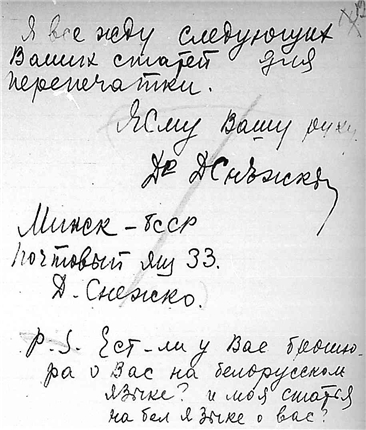 Я все жду следующих
Ваших статей для
перепечатки.
Жму Вашу руку
Др ДСнѣжко
Минск - БССР
почтовый ящ 33.
Д. Снежко.
P.S. Ест-ли у Вас брошю-
ра о Вас на белорусском
языке? и моя статья
на бел языке о вас?